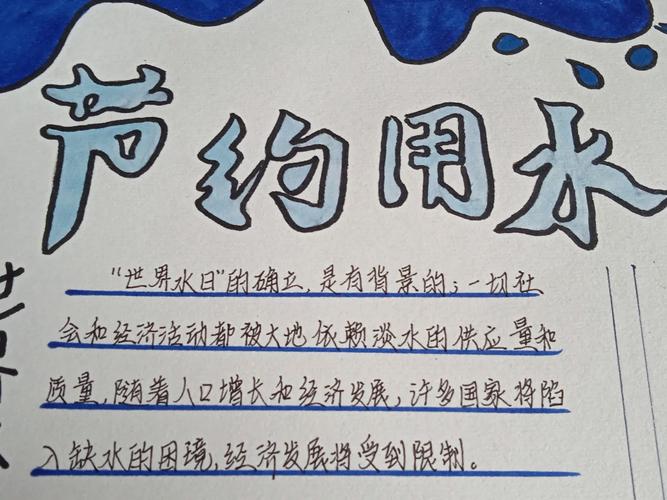 节约用水
“世界水日”的确立,是有背景的;一切社
会和经济活动都被大地依赖淡水的供应量和
质量,随着人口增长和经济发展,许多国家将陷
入缺水的困境,经济发展将受到限制。